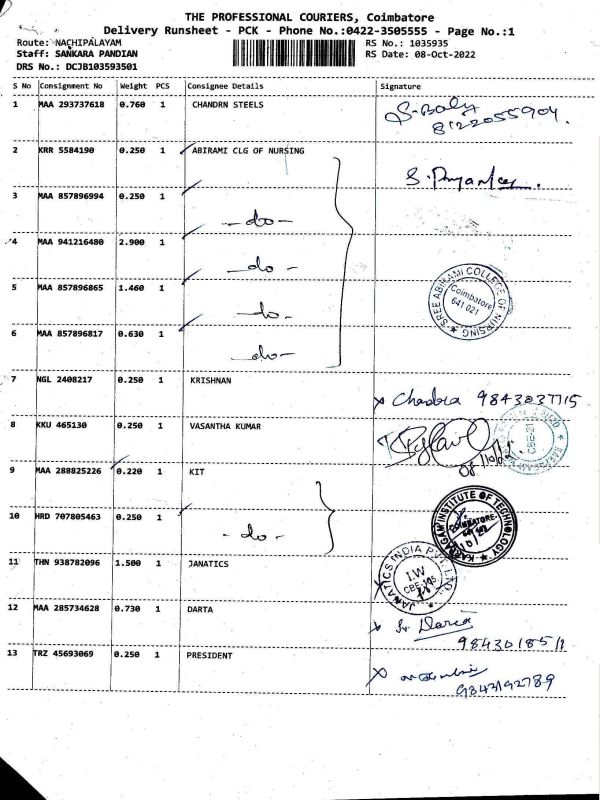 THE PROFESSIONAL COURIERS, Coimbatore
Delivery Runsheet - PCK - Phone No.:0422-3505555 - Page No.:1
Route: NACHIPALAYAM RS No.: 1035935
Staff: SANKARA PANDIAN RS Date: 08-Oct-2022
DRS No.: DCJB103593501
S No Consignment No Weight PCS Consignee Details Signature
1 MAA 293737618 0.760 1 CHANDRN STEELS S. Balu
8122055904.
2 KRR 5584190 0.250 1 ABIRAMI CLG OF NURSING
3 MAA 857896994 0.250 1
-do-
4 MAA 941216480 2.900 1
-do-
5 MAA 857896865 1.460 1 SREE ABIRAMI COLLEGE OF NURSING
Coimbatore
641 021
-do-
6 MAA 857896817 0.630 1
-do-
7 NGL 2408217 0.250 1 KRISHNAN
x Chandra 9843037715
8 KKU 465130 0.250 1 VASANTHA KUMAR
9 MAA 288825226 0.220 1 KIT
10 HRD 707805463 0.250 1 KARPAGAM INSTITUTE OF TECHNOLOGY
COIMBATORE
-do-
11 THN 938782096 1.500 1 JANATICS JANATICS INDIA PVT. LTD.
I.W
12 MAA 285734628 0.730 1 DARTA
13 TRZ 45693069 0.250 1 PRESIDENT
9843192789